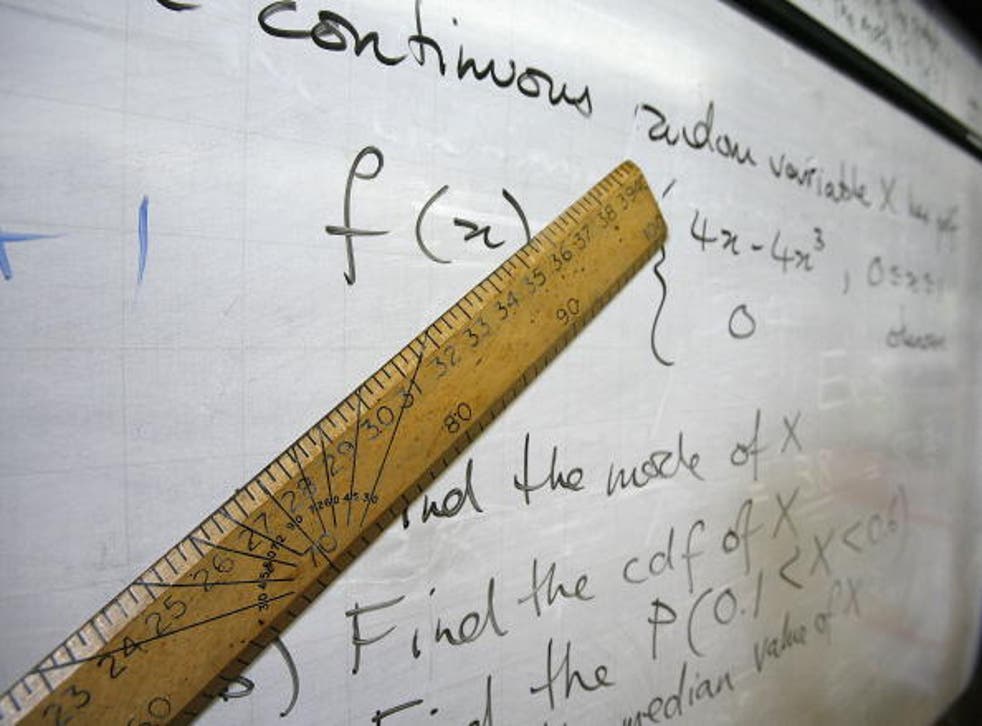 continuous random variable X has pdf
f(x)
4x - 4x³, 0≤x≤1
0 otherwise
+ 1
the mode of X
Find the cdf of X
b) Find the P(0.1 < X < 0.6)
median value of X
23 24 25 26 27 28 29 30 31 32 33 34 35 36 37 38 39
60 70 80 90 100